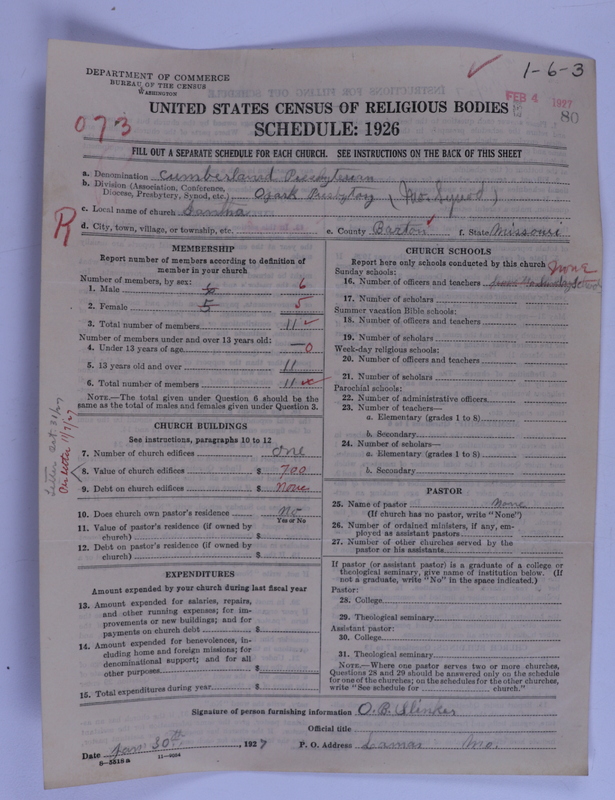 DEPARTMENT OF COMMERCE
BUREAU OF THE CENSUS
WASHINGTON
1-6-3
FEB 4 1927
80
UNITED STATES CENSUS OF RELIGIOUS BODIES
073
SCHEDULE: 1926
FILL OUT A SEPARATE SCHEDULE FOR EACH CHURCH. SEE INSTRUCTIONS ON THE BACK OF THIS SHEET
a. Denomination Cumberland Presbyterian
b. Division (Association, Conference, Diocese, Presbytery, Synod, etc.) Ozark Presbytry (Mo. Synod)
c. Local name of church
R
d. City, town, village, or township, etc. e. County Barton f. State Missouri
MEMBERSHIP
Report number of members according to definition of
member in your church
Number of members, by sex:
1. Male 6 6
2. Female 5 5
3. Total number of members 11
Number of members under and over 13 years old:
4. Under 13 years of age —0
5. 13 years old and over 11
6. Total number of members 11
NOTE.—The total given under Question 6 should be the
same as the total of males and females given under Question 3.
CHURCH BUILDINGS
See instructions, paragraphs 10 to 12
7. Number of church edifices one
8. Value of church edifices $ 700
9. Debt on church edifices $ None
10. Does church own pastor's residence? No
Yes or No
11. Value of pastor's residence (if owned by
church) $
12. Debt on pastor's residence (if owned by
church) $
EXPENDITURES
Amount expended by your church during last fiscal year
13. Amount expended for salaries, repairs,
and other running expenses; for im-
provements or new buildings; and for
payments on church debt $
14. Amount expended for benevolences, in-
cluding home and foreign missions; for
denominational support; and for all
other purposes $
15. Total expenditures during year $
CHURCH SCHOOLS
Report here only schools conducted by this church
None
Sunday schools:
16. Number of officers and teachers
17. Number of scholars
Summer vacation Bible schools:
18. Number of officers and teachers
19. Number of scholars
Week-day religious schools:
20. Number of officers and teachers
21. Number of scholars
Parochial schools:
22. Number of administrative officers
23. Number of teachers—
a. Elementary (grades 1 to 8)
b. Secondary
24. Number of scholars—
a. Elementary (grades 1 to 8)
b. Secondary
PASTOR
25. Name of pastor none
(If church has no pastor, write "None")
26. Number of ordained ministers, if any, em-
ployed as assistant pastors
27. Number of other churches served by the
pastor or his assistants
If pastor (or assistant pastor) is a graduate of a college or
theological seminary, give name of institution below. (If
not a graduate, write "No" in the space indicated.)
Pastor:
28. College
29. Theological seminary
Assistant pastor:
30. College
31. Theological seminary
NOTE.—Where one pastor serves two or more churches,
Questions 28 and 29 should be answered only on the schedule
for one of the churches; on the schedules for the other churches,
write "See schedule for church."
Signature of person furnishing information O. B. Slinker
Official title
Date Jan 30th, 1927 P. O. Address Lamar Mo.
8-5518a 11-9024